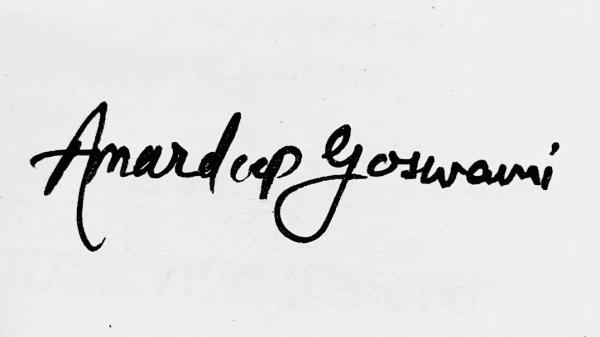 Amardeep Goswami